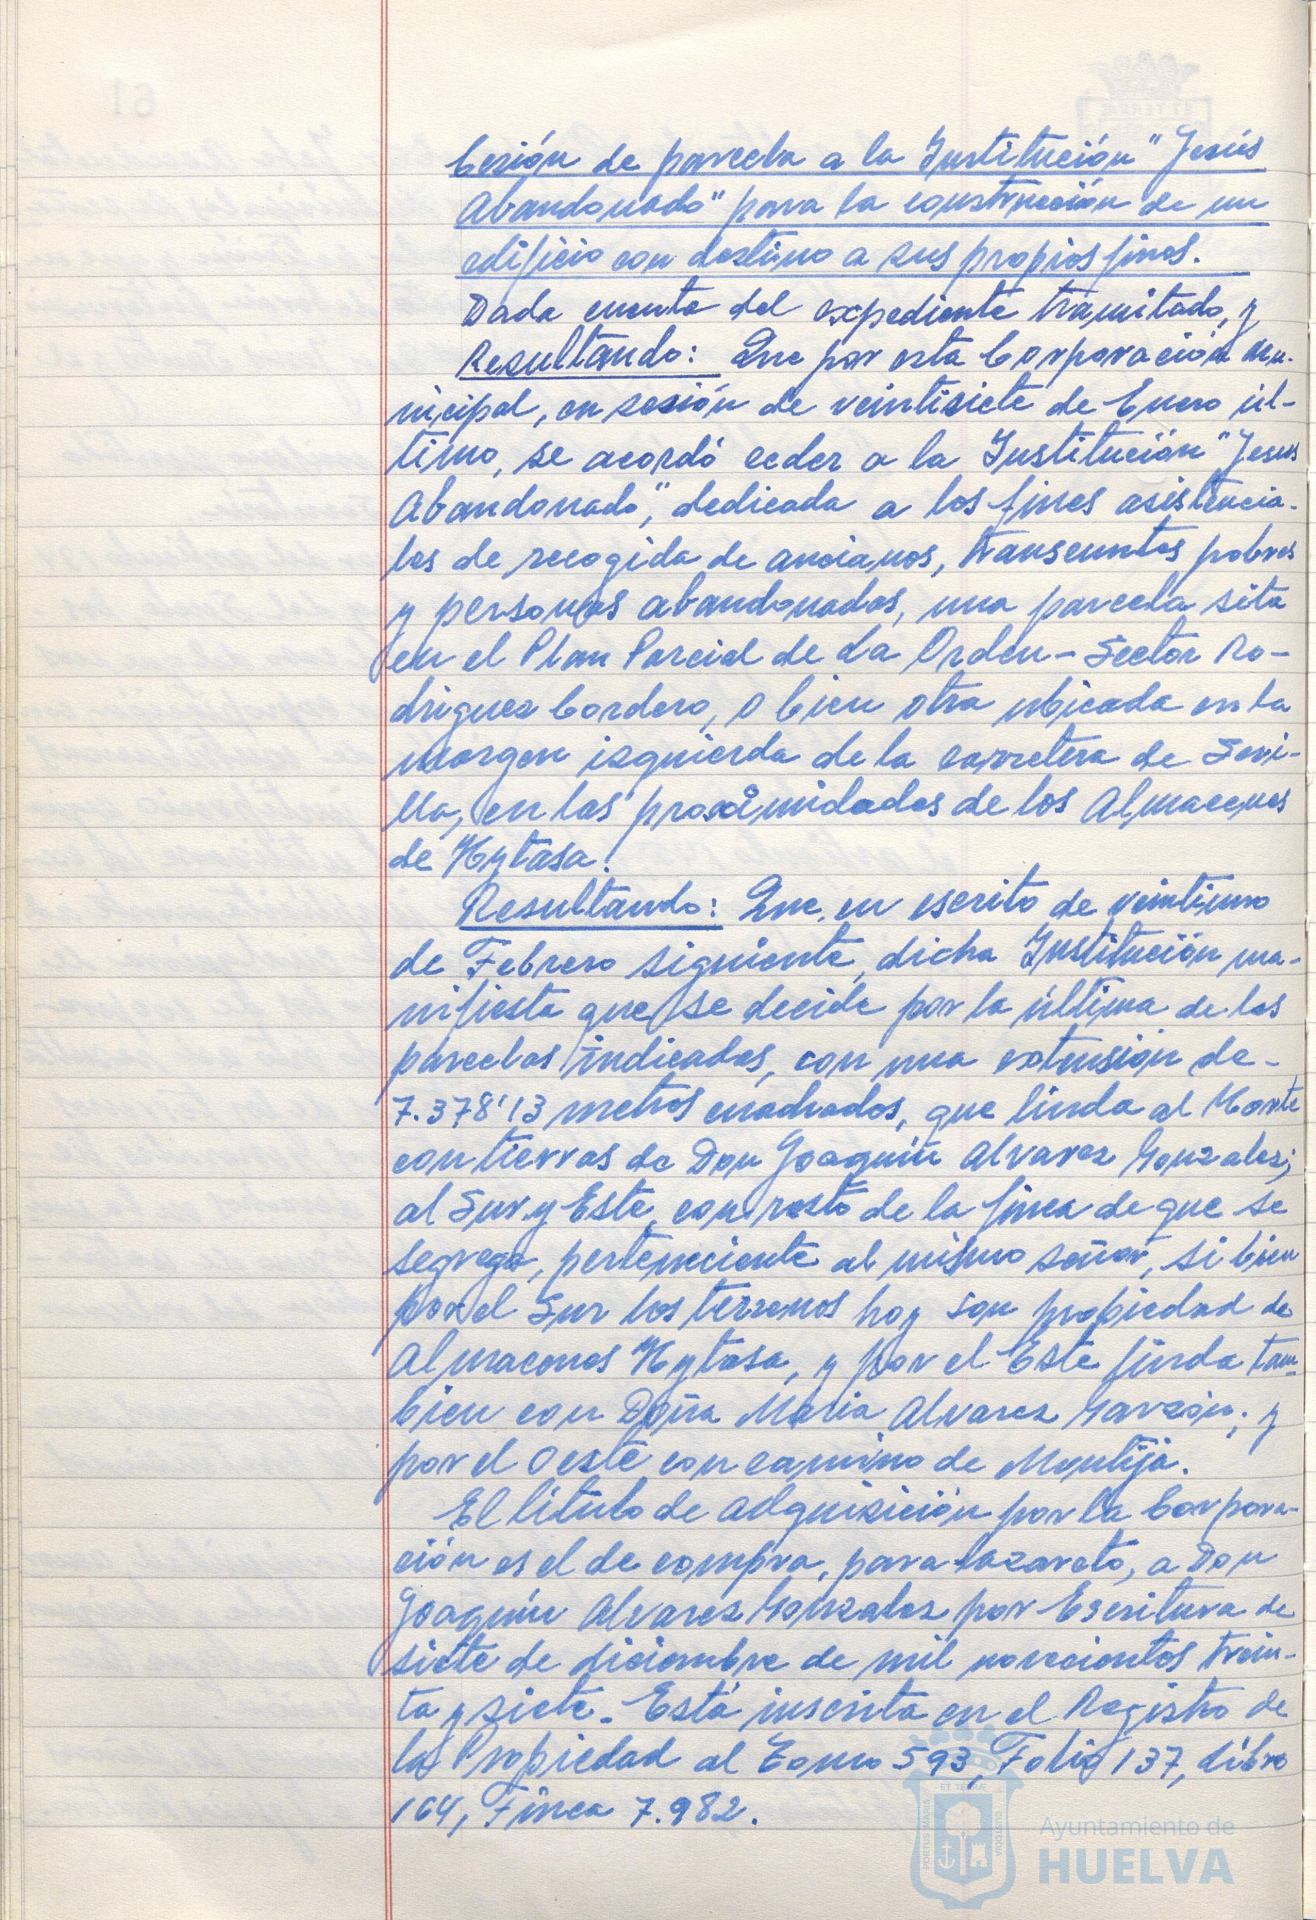 Cesión de parcela a la Institución "Jesús
Abandonado" para la construcción de un
edificio con destino a sus propios fines.
Dada cuenta del expediente tramitado, y
Resultando: Que por esta Corporación mu-
nicipal, en sesión de veintisiete de Enero úl-
timo, se acordó ceder a la Institución "Jesus
Abandonado", dedicada a los fines asistencia-
les de recogida de ancianos, transeuntes pobres
y personas abandonadas, una parcela sita
en el Plan Parcial de La Orden - Sector Ro-
driguez Cordero, o bien otra ubicada en la
margen izquierda de la carretera de Sevi-
lla, en las proximidades de los Almacenes
de Hytasa.
Resultando: Que, en escrito de veintiuno
de Febrero siguiente, dicha Institución ma-
nifiesta que se decide por la última de las
parcelas indicadas, con una extensión de -
7.378'13 metros cuadrados, que linda al Norte
con tierras de Don Joaquín Alvarez Gonzalez;
al Sur y Este, con resto de la finca de que se
segrega, perteneciente al mismo señor, si bien
por el Sur los terrenos hoy son propiedad de
Almacenes Hytasa, y por el Este linda tam-
bien con Doña Maria Alvarez Garzón; y
por el Oeste con camino de Montija.
El titulo de adquisición por la Corpora-
ción es el de compra, para lazareto, a Don
Joaquín Alvarez Gonzalez por Escritura de
siete de diciembre de mil novecientos trein-
ta y siete. Está inscrita en el Registro de
la Propiedad al Tomo 593, Folio 137, Libro
164, Finca 7.982.
Ayuntamiento de
HUELVA